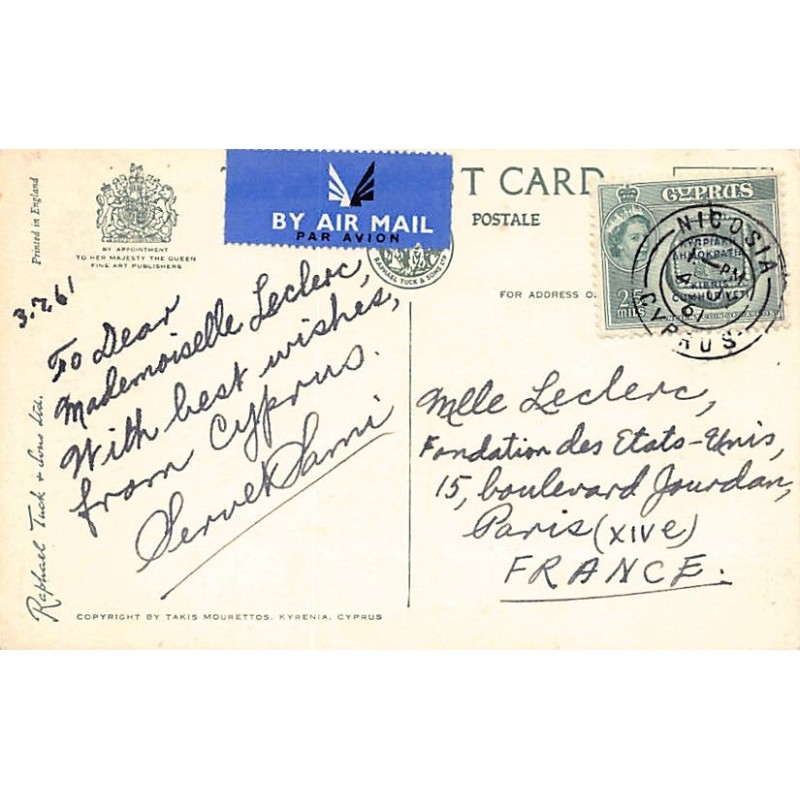 Printed in England
BY APPOINTMENT
TO HER MAJESTY THE QUEEN
FINE ART PUBLISHERS
BY AIR MAIL
PAR AVION
T CARD
POSTALE
RAPHAEL TUCK & SONS LTD
FOR ADDRESS O
CYPRUS
25
MILS
ΚΥΠΡΙΑΚΗ
ΔΗΜΟΚΡΑΤΙΑ
KIBRIS
CUMHURİYETİ
NICOSIA
PM
61
CYPRUS
3.2.61
To Dear
Mademoiselle Leclerc,
With best wishes,
from Cyprus.
Servet Sami
Mlle Leclerc,
Fondation des Etats-Unis,
15, boulevard Jourdan,
Paris (XIVe)
FRANCE.
Raphael Tuck & Sons Ltd.
COPYRIGHT BY TAKIS MOURETTOS, KYRENIA, CYPRUS